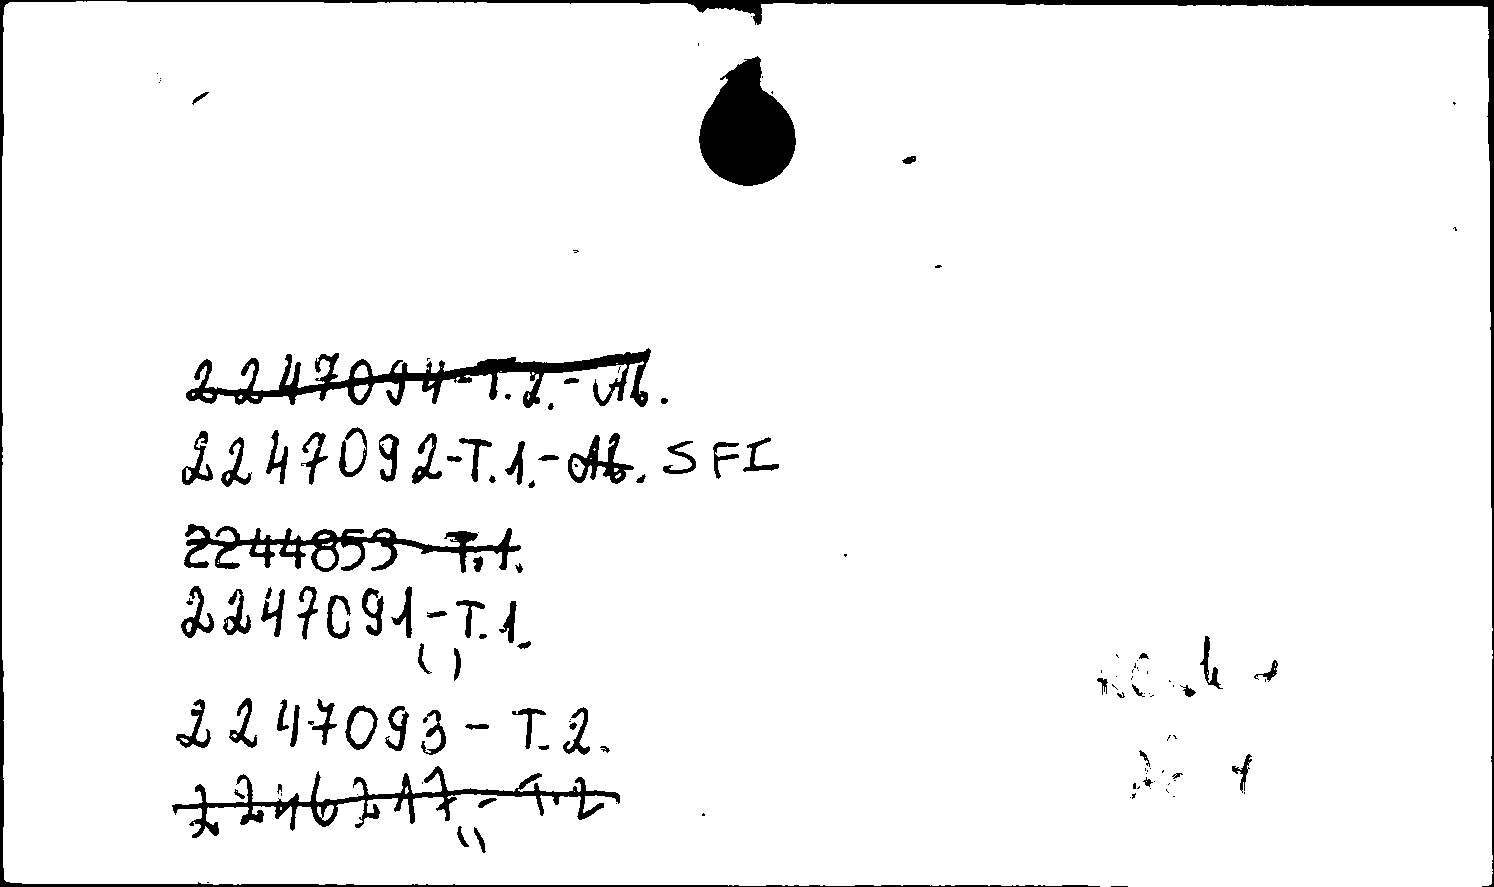 2247094-T.2.-Ab.
2247092-T.1.-Ab. SFI
2244853-T.1.
2247091-T.1.
2247093-T.2.
2246217-T.2